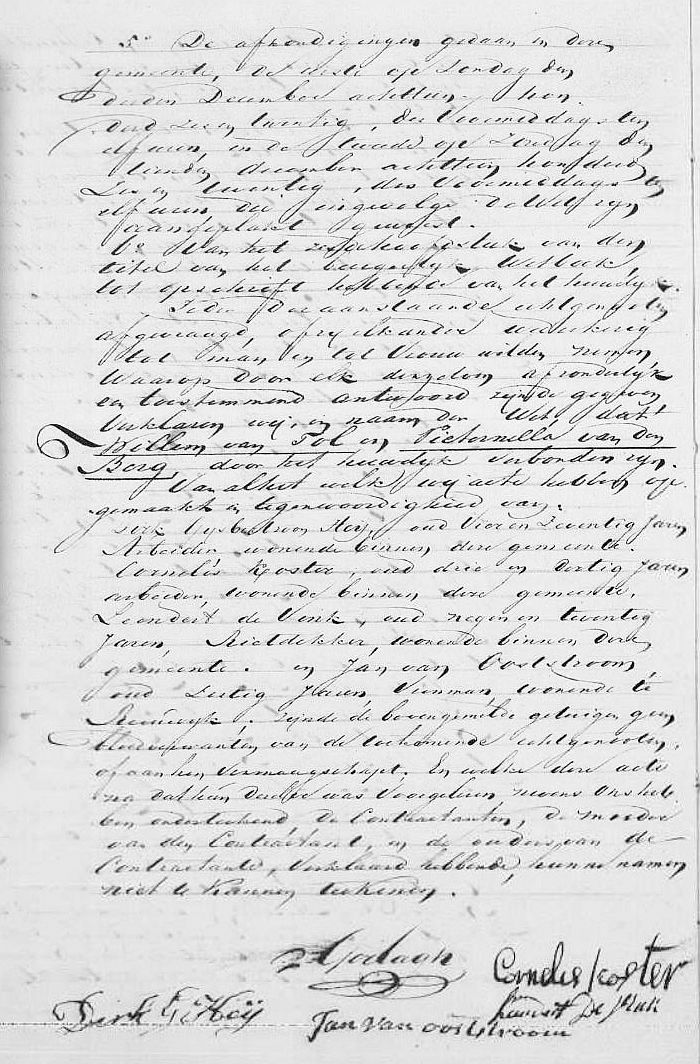 5° De afkondigingen gedaan in deze
gemeente, de eerste op Zondag den
derden December achttien hon
derd zes en twintig, des Voormiddags ten
elf uren, en de tweede op Zondag den
tienden december achttien honderd
Zes en twentig, des Voormiddags ten
elf uren, die ingevolge de Wet zijn
aangeplakt geweest.
6° Van het zesde hoofdstuk van den
titel van het burgerlijk Wetboek,
tot opschrift hebbende van het huwelijk.
Ieder der aanstaande echtgenoten
afgevraagd, of zij elkander wederkeerig
tot man en tot Vrouw wilden nemen,
Waarop door elk derzelven afzonderlijk
een toestemmend antwoord zijnde gegeven
Verklaren wij, in naam der Wet, dat
Willem van Tol en Pieternella van den
Berg, door het huwelijk verbonden zijn.
Van al het welk wij acte hebben op
gemaakt in tegenwoordigheid van.
oud Vier en Zeventig Jaren
Arbeider, wonende binnen deze gemeente.
Cornelis Koster, oud drie en dertig Jaren
arbeider, wonende binnen deze gemeente.
Leendert de Vink, oud negen en twentig
Jaren, Rietdekker, wonende binnen deze
gemeente. en Jan van Ooststroom,
oud Jaren, Veenman, wonende te
Reeuwyk, zijnde de bovengemelde getuigen geen
bloedverwanten van de toekomende echtgenoten,
of aan hen Vermaagschapt. En welke deze acte
na dat hun dezelve was Voorgelezen nevens Ons heb
ben onderteekend de Contractanten, de moeder
van den Contractant, en de ouders van de
Contractante, Verklaard hebbende, hunne namen
niet te kunnen teekenen.
Cornelis Koster
Dirk
Jan van ooststroom